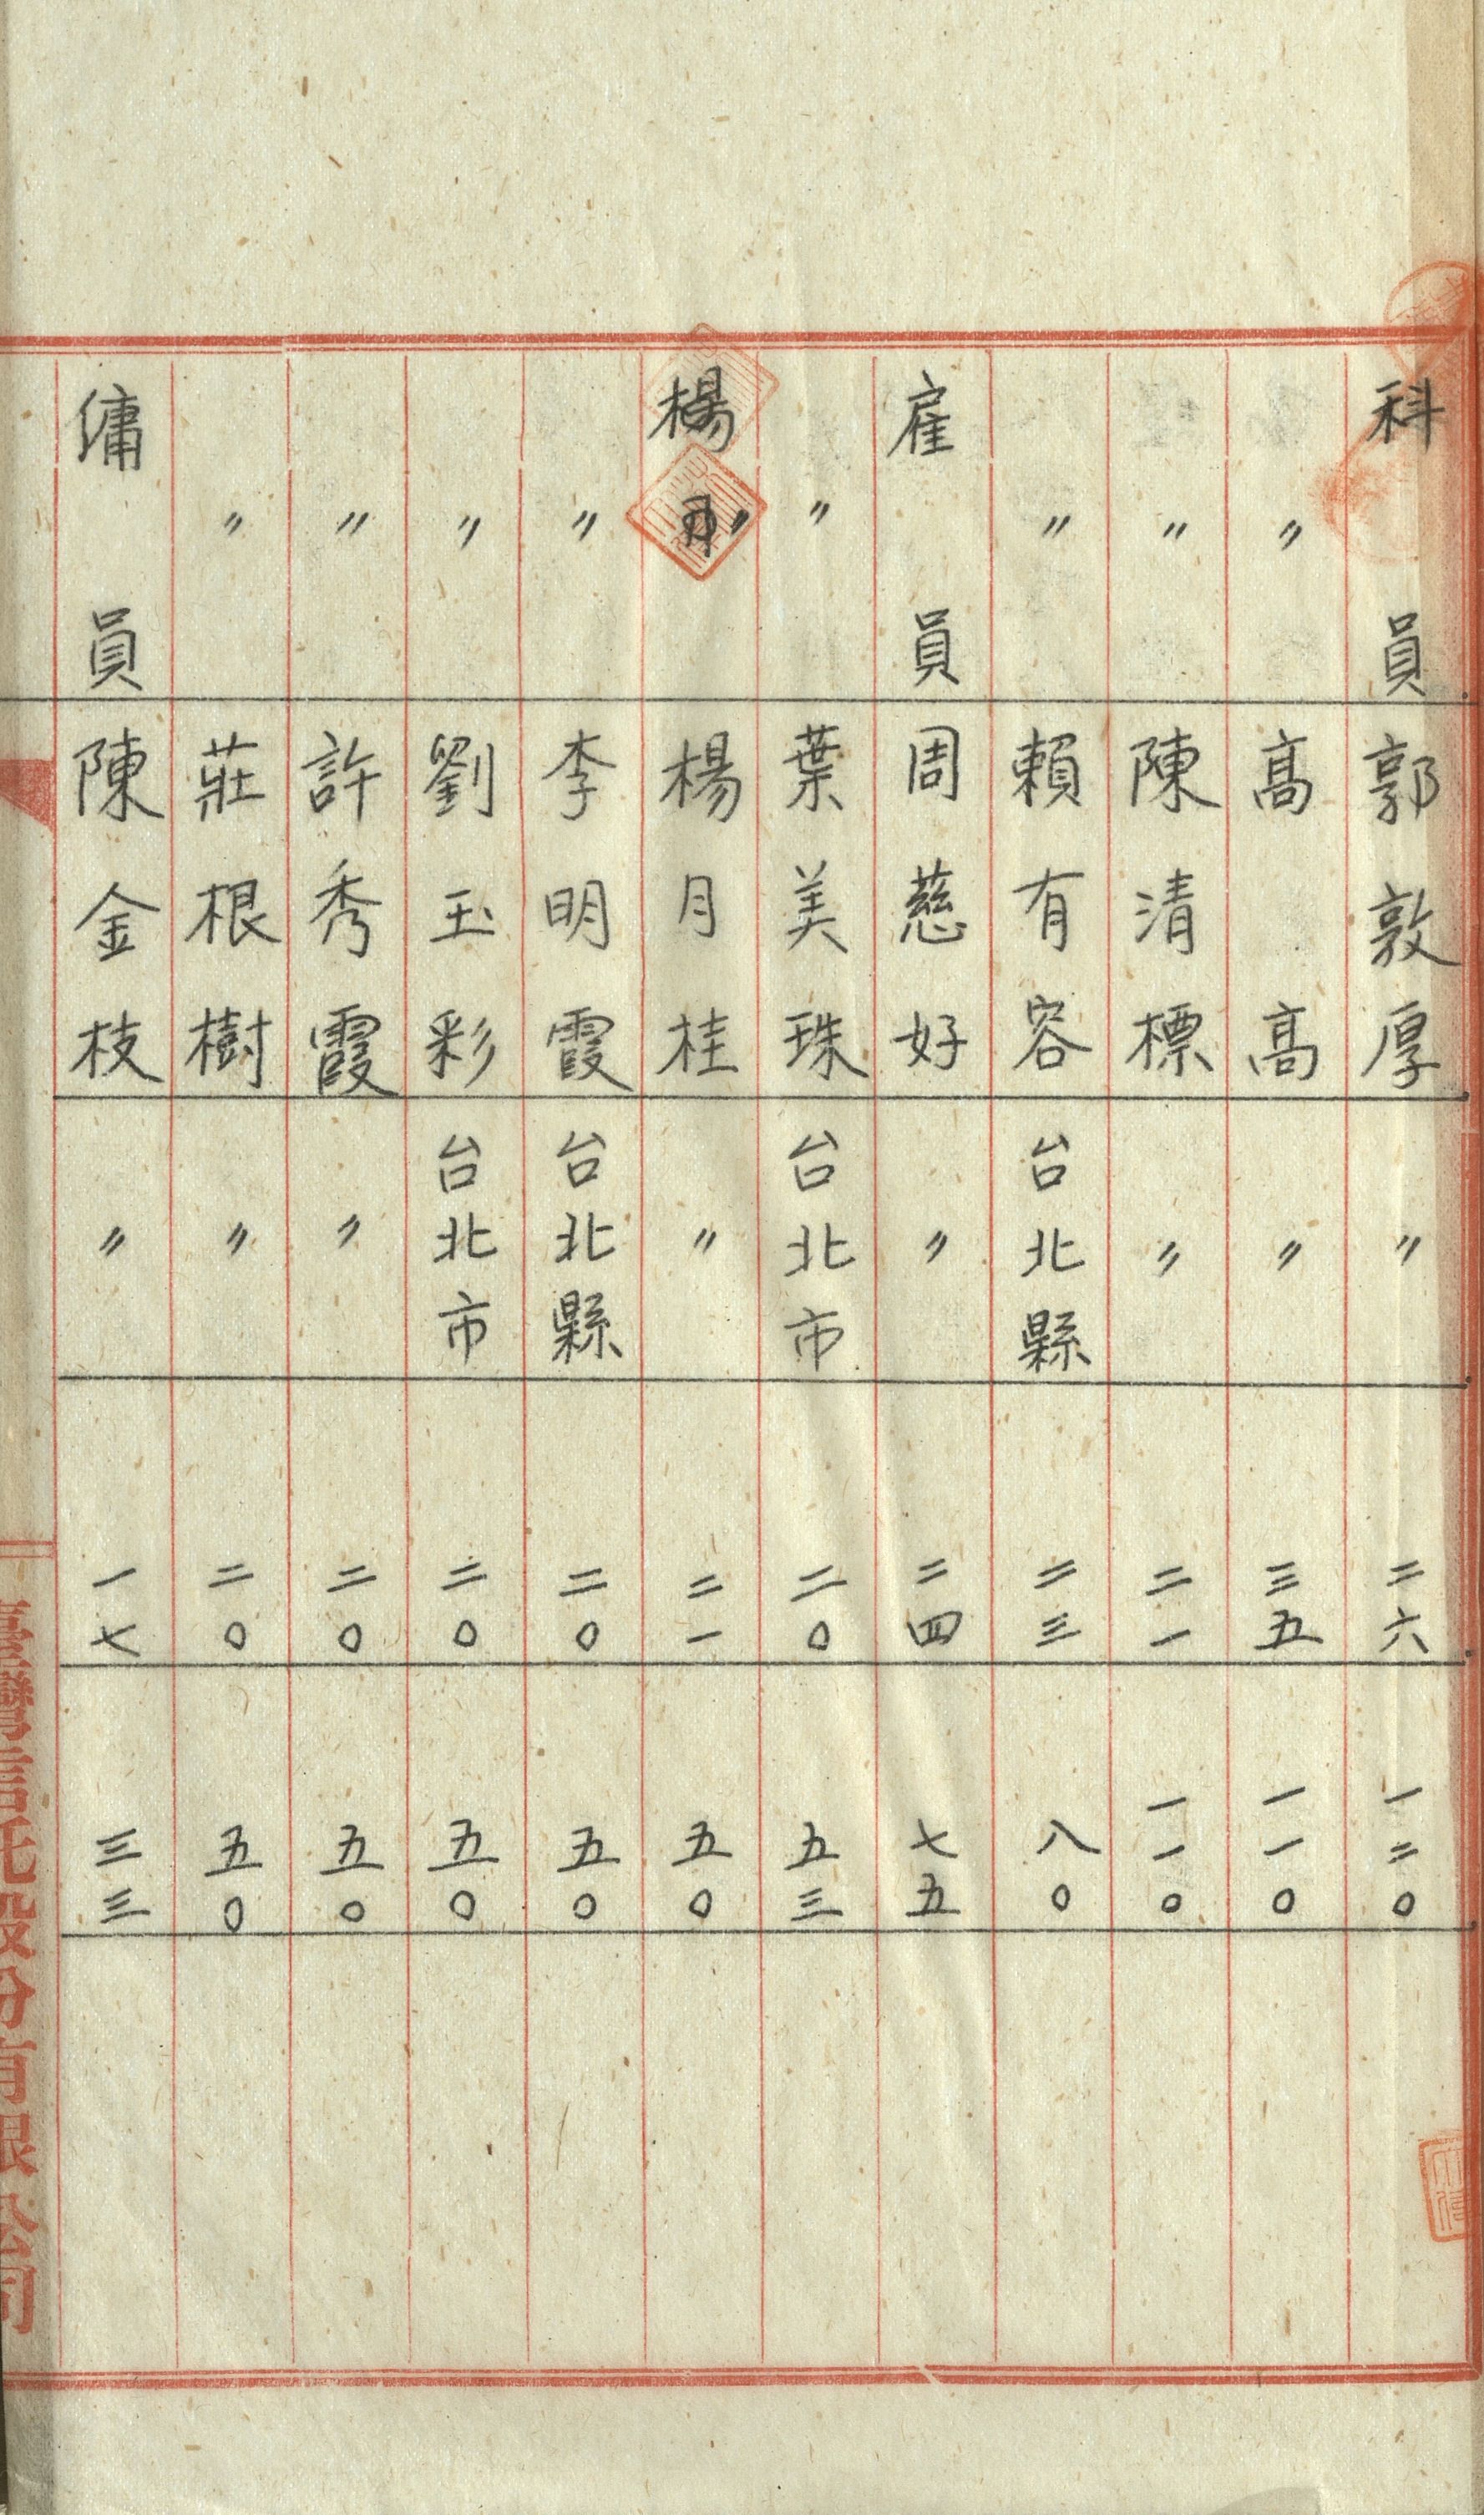 科員 郭敦厚 〃 二六 一二〇
〃 高高 〃 三五 一一〇
〃 陳清標 〃 二一 一一〇
〃 賴有容 台北縣 二三 八〇
雇員 周慈好 〃 二四 七五
〃 葉美珠 台北市 二〇 五三
楊月〃 楊月桂 〃 二一 五〇
〃 李明霞 台北縣 二〇 五〇
〃 劉玉彩 台北市 二〇 五〇
〃 許秀霞 〃 二〇 五〇
〃 莊根樹 〃 二〇 五〇
傭員 陳金枝 〃 一七 三三
臺灣信託股份有限公司